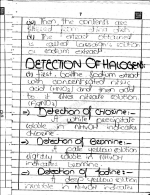 Then the contents are
filtered from china dish
The filtrate formed
is called Lassaigne's solution
or sodium extract.
DETECTION OF HALOGEN:
First, boil the sodium extract
with concentrated nitric
acid (HNO3) and then add
silver nitrate solution
(AgNO3)
=> Detection of Chlorine:-
A white precipitate
soluble in NH4OH indicates
chlorine
=> Detection of Bromine:-
A pale yellow precipitate
slightly soluble in NH4OH
indicates bromine.
=> Detection of Iodine:-
A yellow precipitate
insoluble in NH4OH indicates